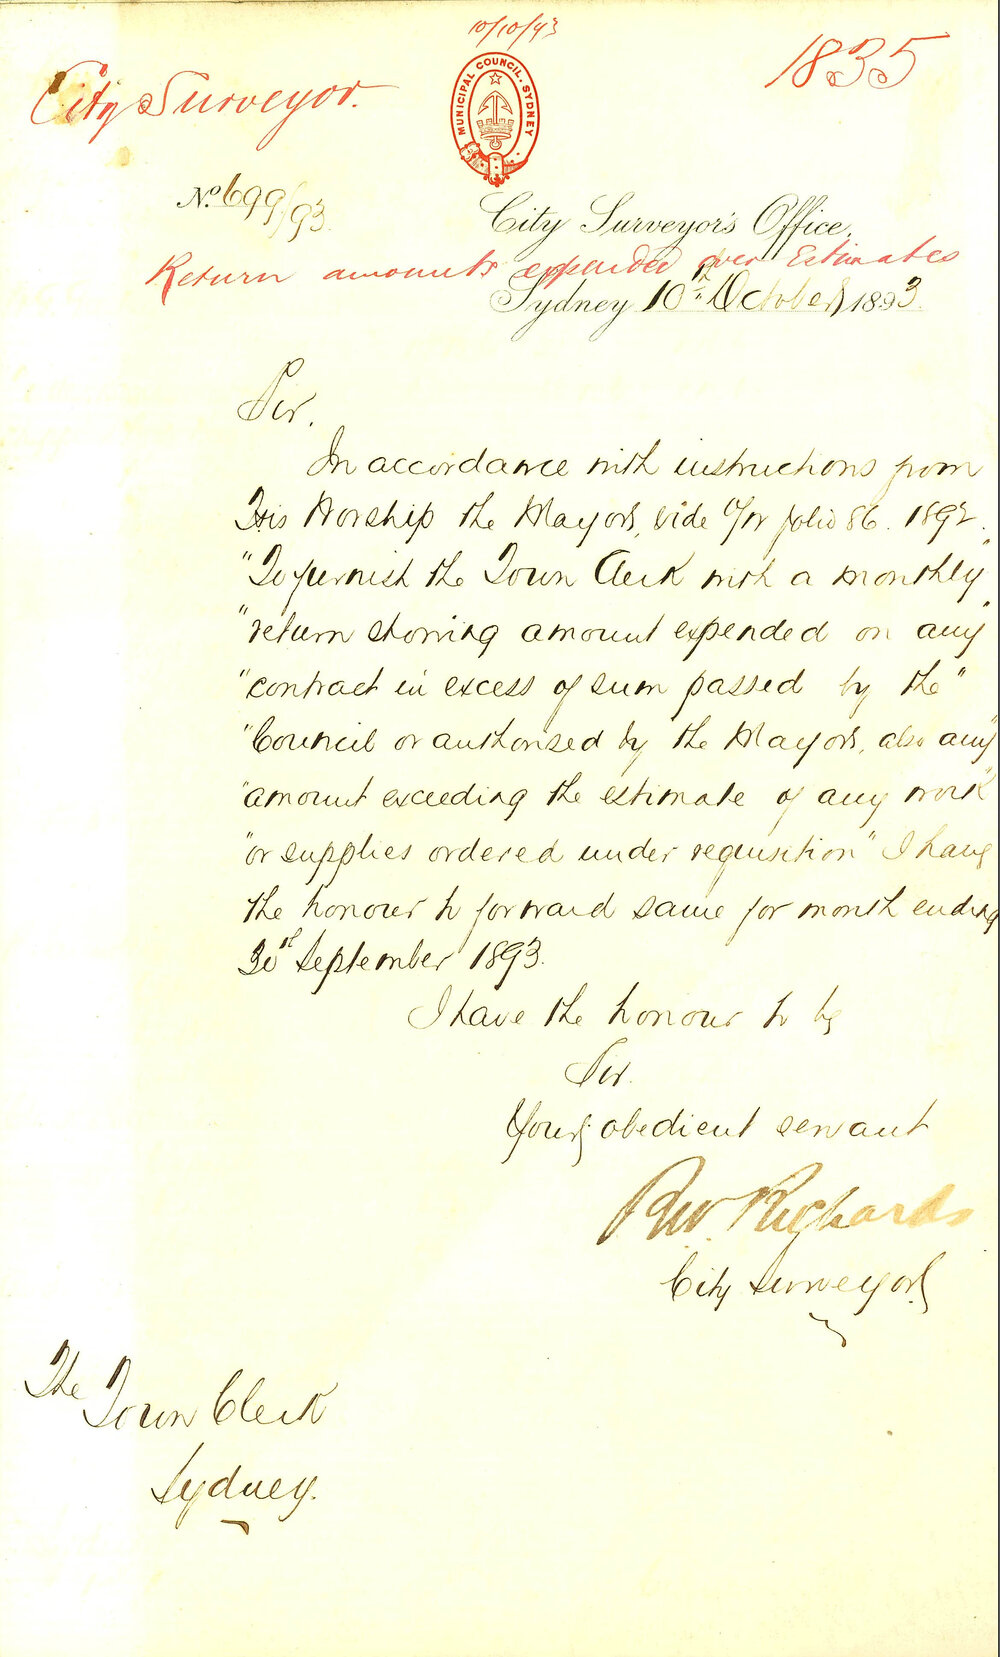 10/10/93
1835
City Surveyor.
MUNICIPAL COUNCIL. SYDNEY
No. 699/93
City Surveyor's Office,
Return amounts expended over Estimates
Sydney 10th October 1893.
Sir.
In accordance with instructions from
His Worship the Mayor, vide folio 86. 1892.
"To furnish the Town Clerk with a monthly"
"return showing amount expended on any"
"contract in excess of sum passed by the"
"Council or authorised by the Mayor, also any"
"amount exceeding the estimate of any work"
"or supplies ordered under requisition" I have
the honour to forward same for month ending
30th September 1893.
I have the honour to be
Sir.
Your obedient servant
RW. Richards
City Surveyor.
The
Town Clerk
Sydney.